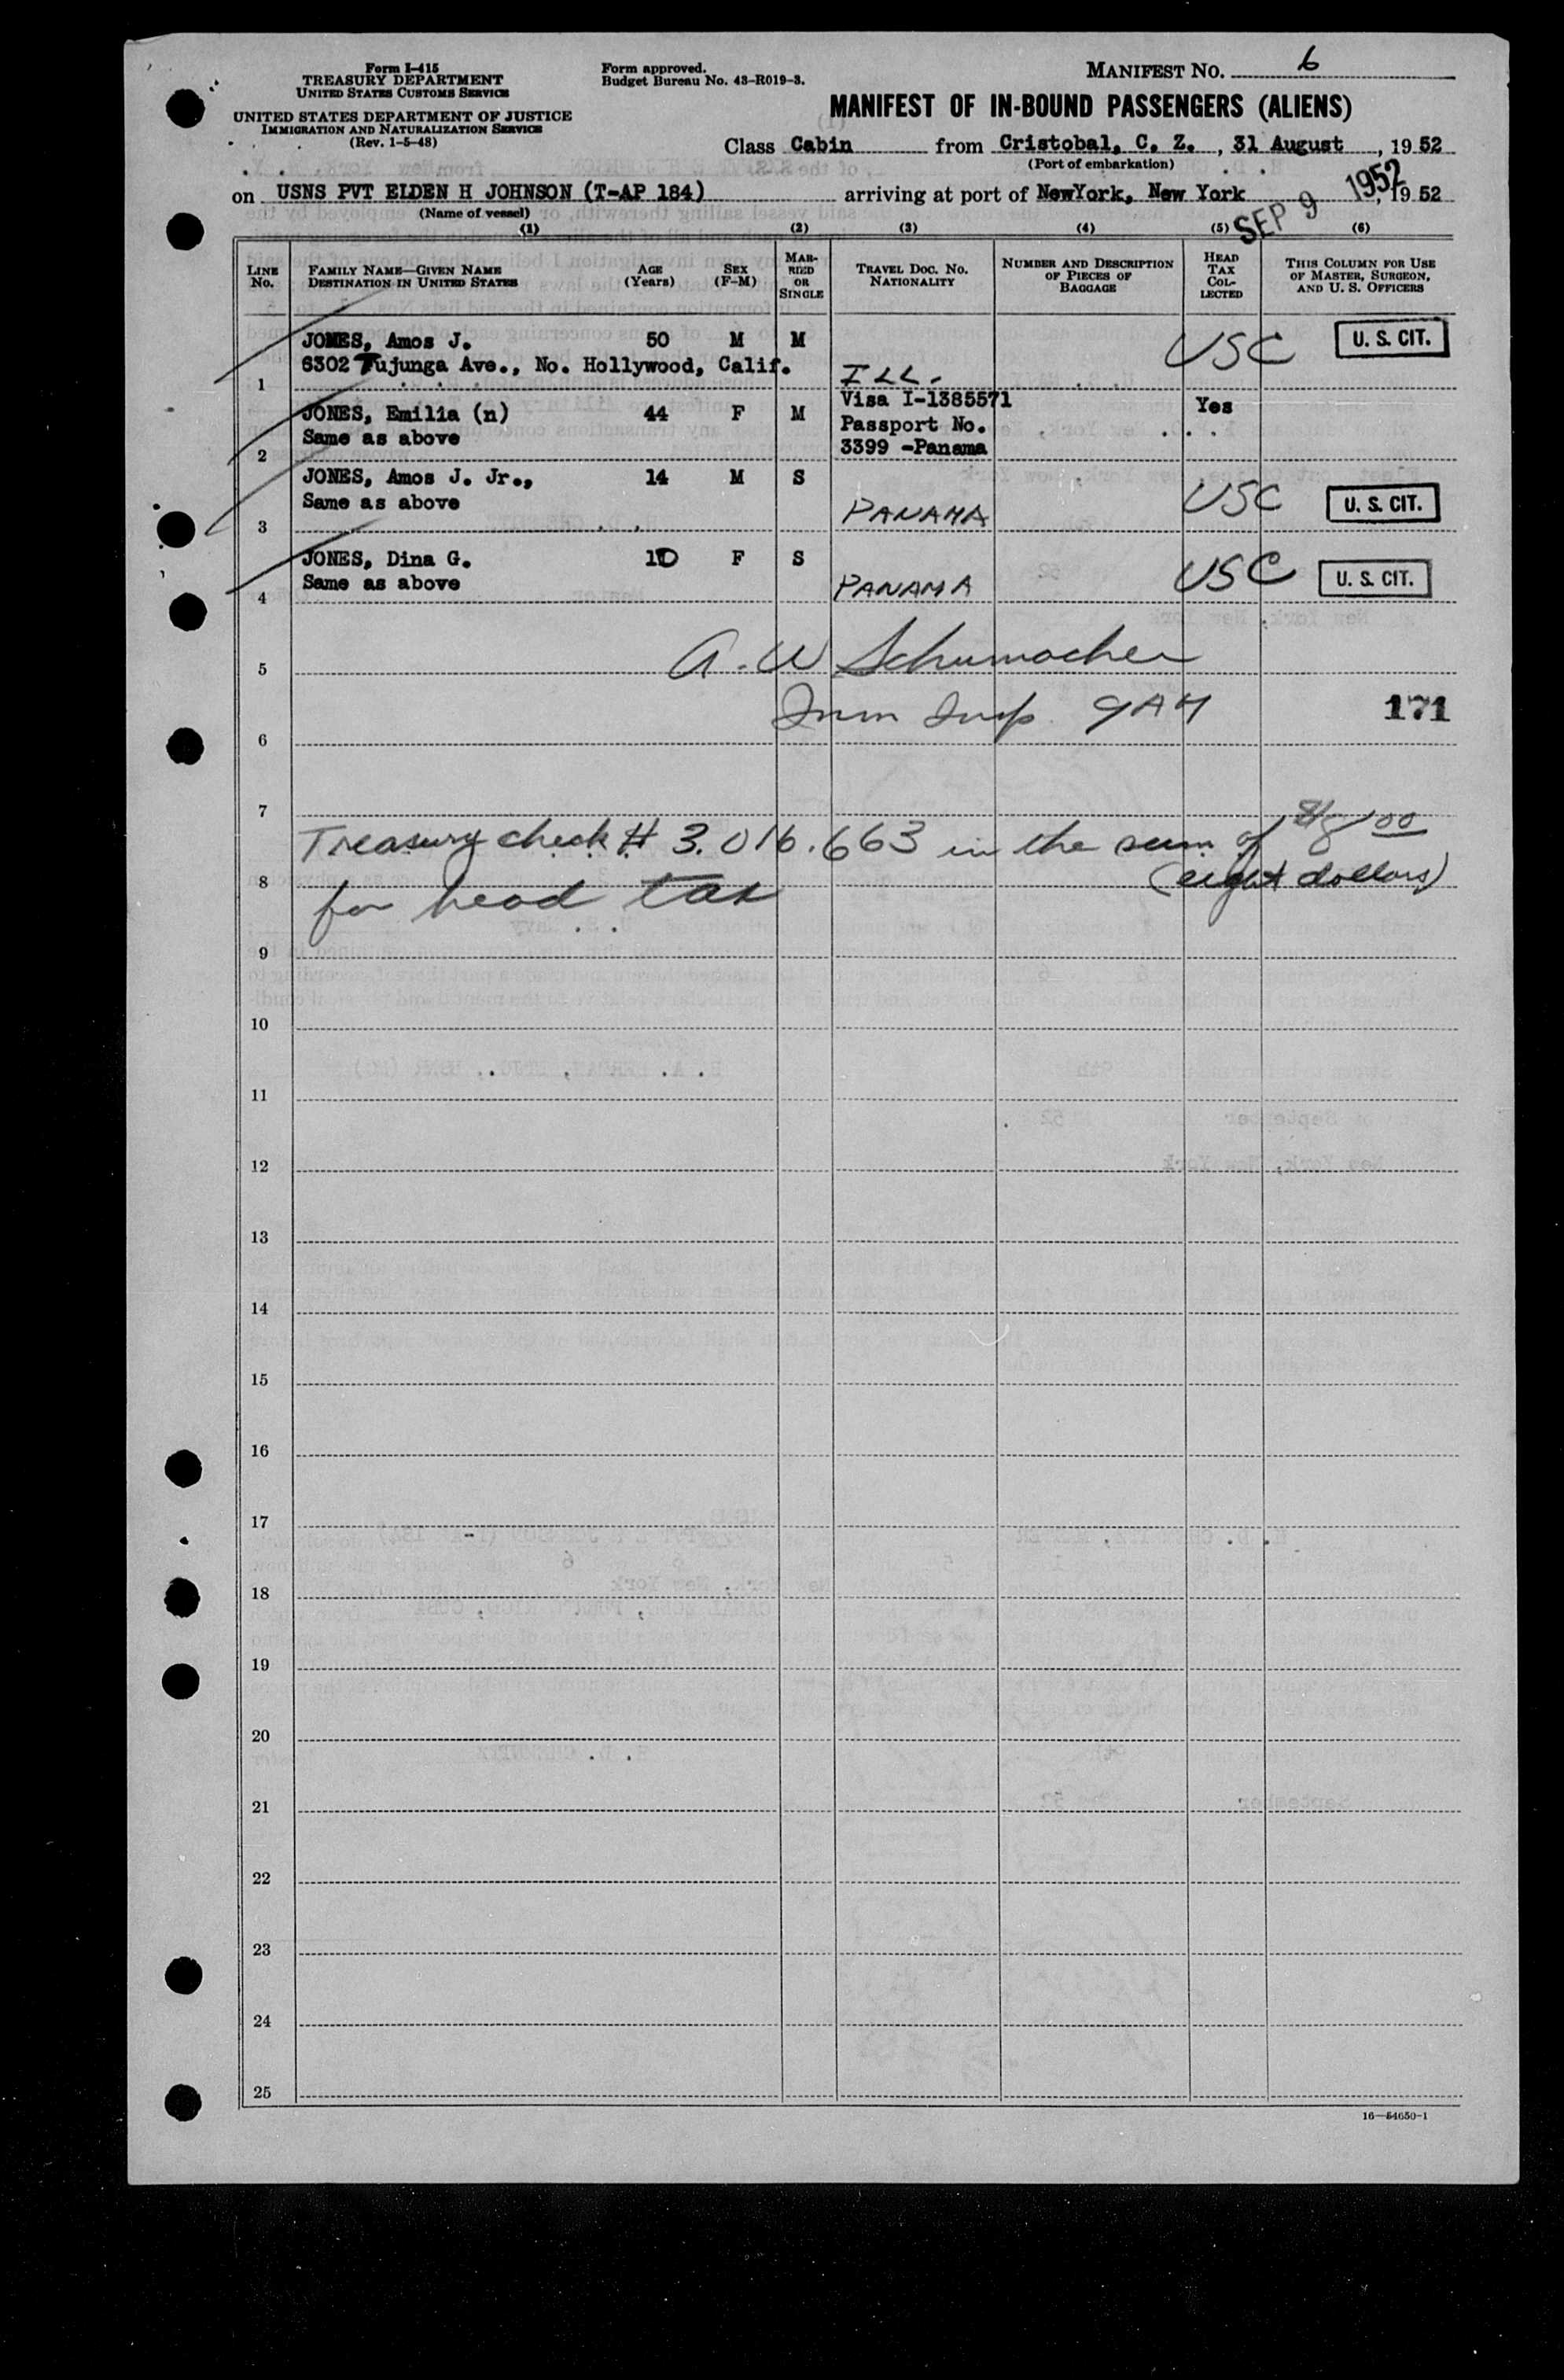 Form I-415
TREASURY DEPARTMENT
UNITED STATES CUSTOMS SERVICE
UNITED STATES DEPARTMENT OF JUSTICE
IMMIGRATION AND NATURALIZATION SERVICE
(Rev. 1-5-48)
Form approved.
Budget Bureau No. 43-R019-3.
MANIFEST NO. 6
MANIFEST OF IN-BOUND PASSENGERS (ALIENS)
Class Cabin from Cristobal, C. Z. , 31 August , 19 52
(Port of embarkation)
on USNS PVT ELDEN H JOHNSON (T-AP 184) arriving at port of NewYork, New York , 19 52
(Name of vessel)
SEP 9 1952
(1) (2) (3) (4) (5) (6)
LINE No. FAMILY NAME—GIVEN NAME DESTINATION IN UNITED STATES AGE (Years) SEX (F-M) MARRIED OR SINGLE TRAVEL DOC. NO. NATIONALITY NUMBER AND DESCRIPTION OF PIECES OF BAGGAGE HEAD TAX COLLECTED THIS COLUMN FOR USE OF MASTER, SURGEON, AND U. S. OFFICERS
JONES, Amos J. 50 M M USC U. S. CIT.
6302 Tujunga Ave., No. Hollywood, Calif.
1 ILL.
JONES, Emilia (n) 44 F M Visa I-1385571 Yes
Same as above Passport No.
2 3399 -Panama
JONES, Amos J. Jr., 14 M S USC U. S. CIT.
Same as above
3 PANAMA
JONES, Dina G. 10 F S USC U. S. CIT.
Same as above
4 PANAMA
5 A. W Schumacher
6 Imm Insp. 171
7
Treasury check # 3.016.663 in the sum of 8 00
8 (eight dollars)
for head tax
9
10
11
12
13
14
15
16
17
18
19
20
21
22
23
24
25
16—54650-1